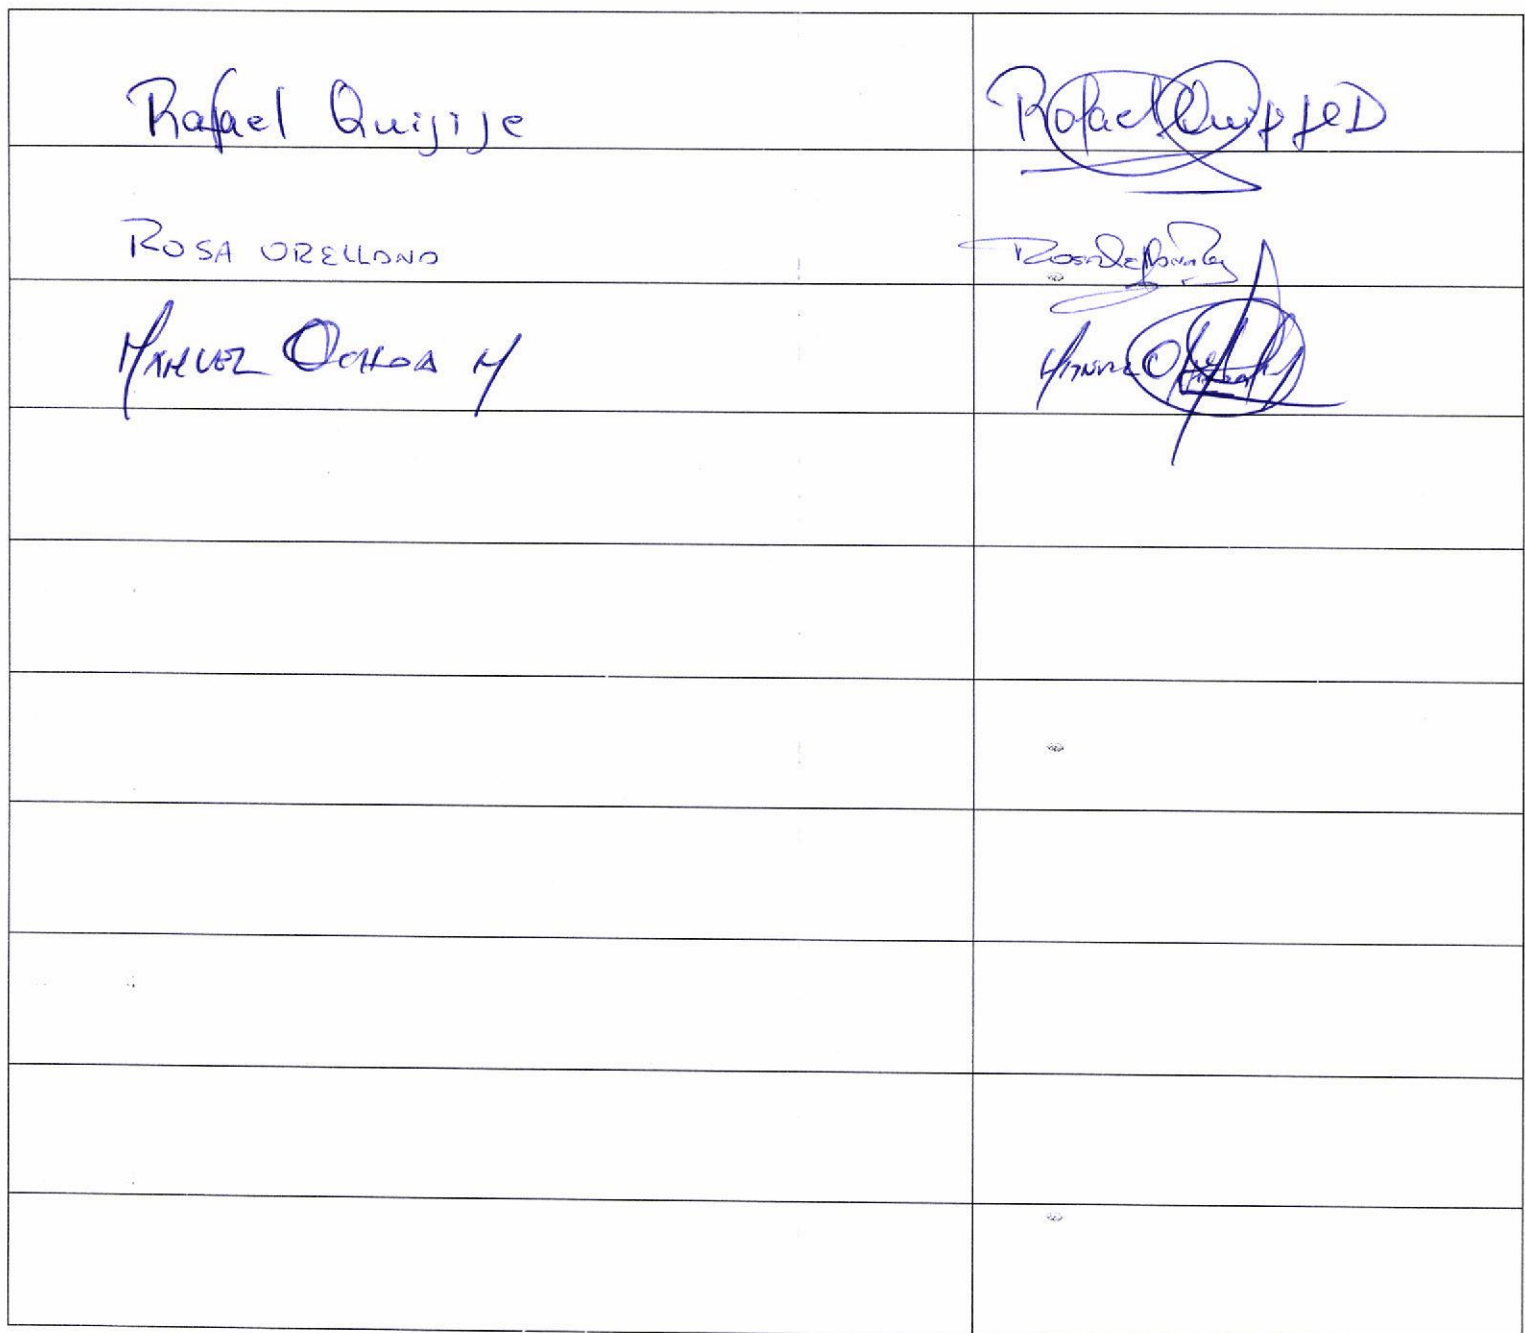 Rafael Quijije Rafael Quijije D
ROSA ORELLANA
MANUEL OCHOA M MANUEL